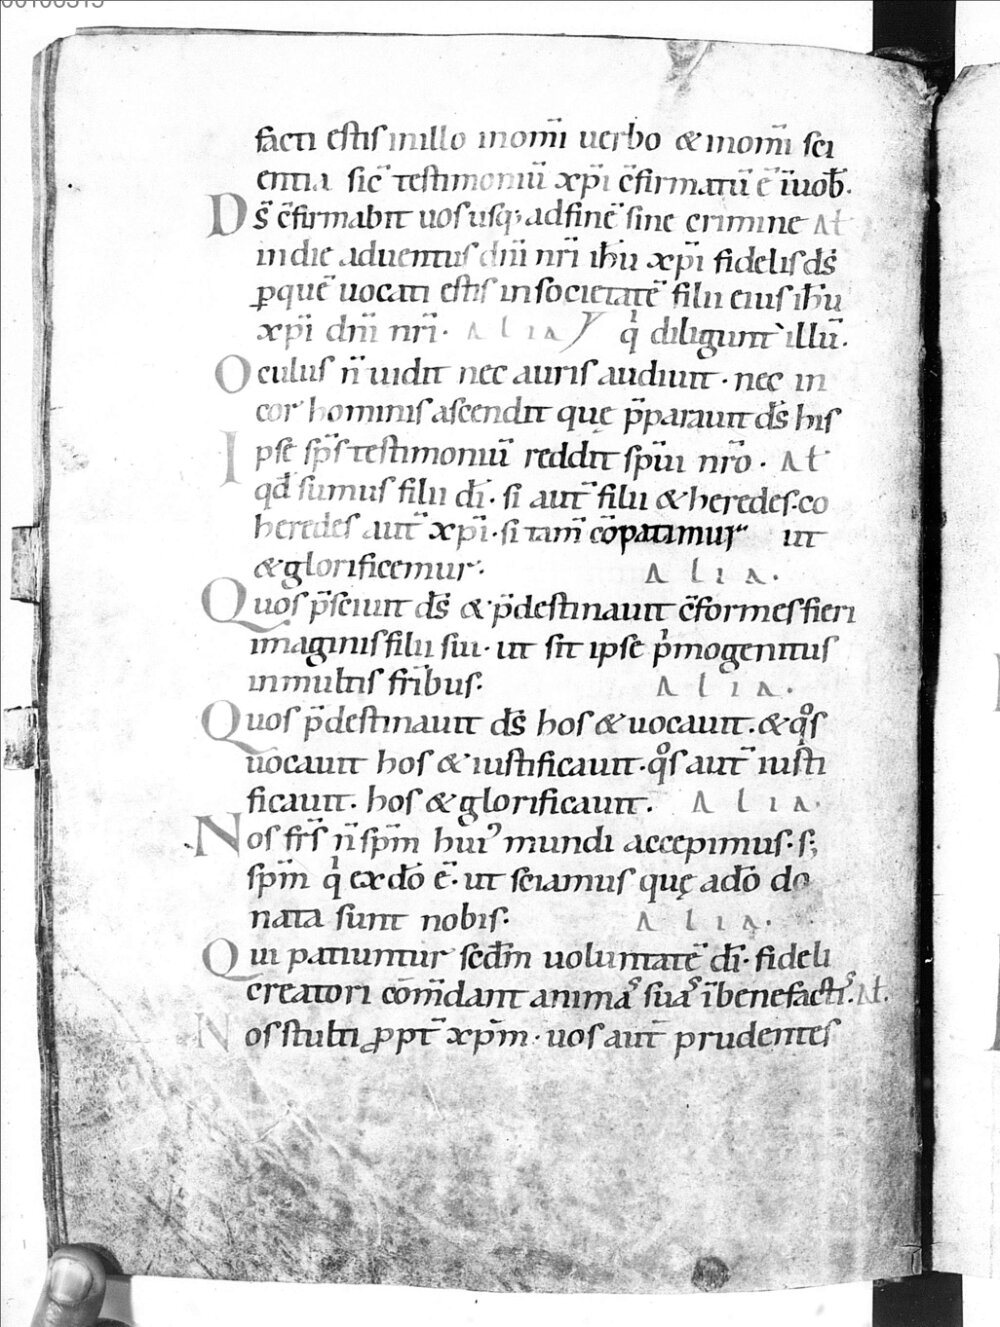 facti estis in illo in om̄i uerbo & in om̄i sci
entia sic̄ testimoniū xp̄i c̄firmatū ē īuob̄.
Ds̄ c̄firmabit uos usq; ad finē sine crimine At
in die aduentus dn̄i nr̄i ihū xp̄i fidelis ds̄
ꝑ quē uocati estis in societatē filii eius ihū
xp̄i dn̄i nr̄i. alia q̍ diligunt illū.
Oculus n̄ uidit nec auris audiuit. nec in
cor hominis ascendit quę p̄parauit ds̄ his
Ipse sp̄s testimoniū reddit sp̄ui nr̄o. At
qđ sumus filii dī. si aut̄ filii & heredes. co
heredes aut̄ xp̄i. si tam̄ cōpatimur ut
& glorificemur. Alia.
Quos p̄sciuit ds̄ & p̄destinauit c̄formes fieri
imaginis filii sui. ut sit ipse p̍mogenitus
in multis fr̄ibus. Alia.
Quos p̄destinauit ds̄ hos & uocauit. & qͦs
uocauit hos & iustificauit. qͦs aut̄ iusti
ficauit. hos & glorificauit. Alia.
Nos fr̄s n̄ sp̄m huiꝰ mundi accepimus. s;
sp̄m q̍ ex dō ē. ut sciamus quę a dō do
nata sunt nobis. Alia.
Qui patiuntur scđm uoluntatē dī. fideli
creatori com̄dant animaˢ suaˢ ī benefactiˢ. At.
Nos stulti ꝓpt̄ xp̄m. uos aut̄ prudentes